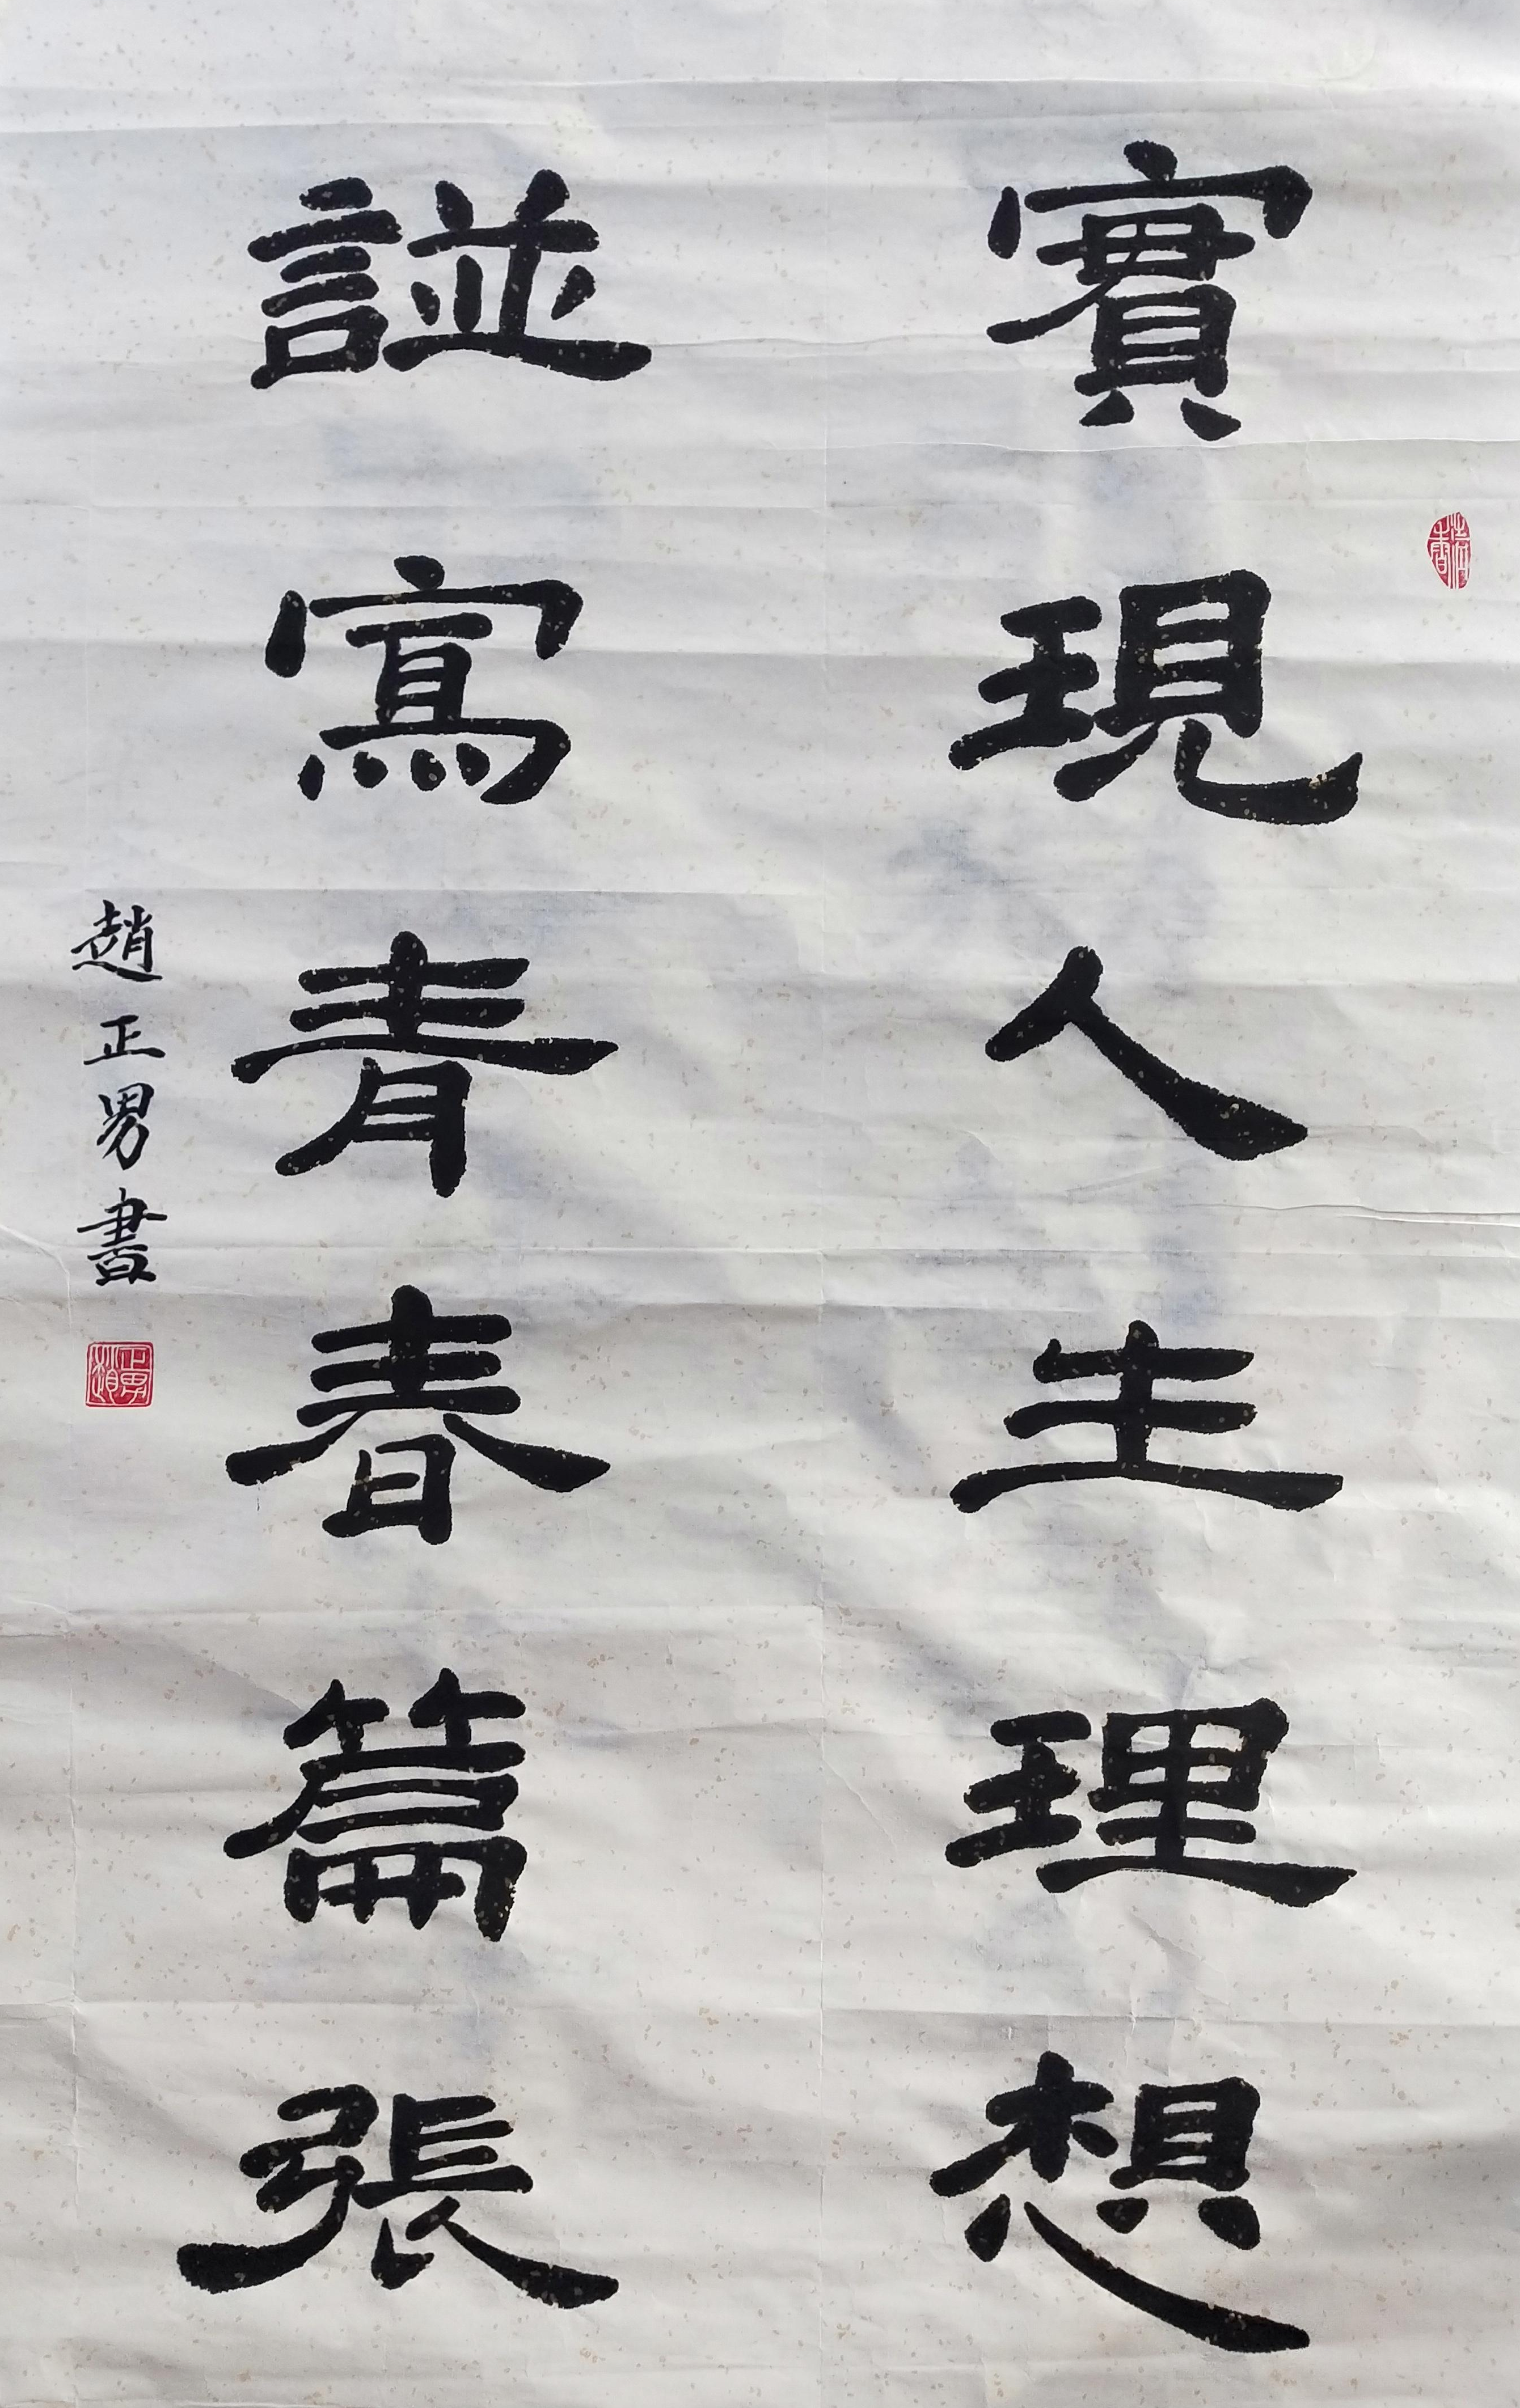 實現人生理想
譜寫青春篇張
趙正男書